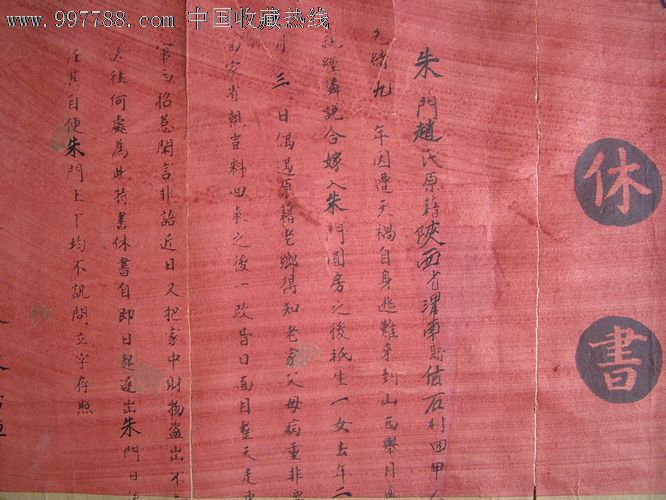 www.997788.com 中国收藏热线
休書
朱門趙氏原籍陝西省渭南縣佔石村四甲人
光緒九年因遭天禍自身逃難來到山西舉目無
說合嫁入朱門圓房之後祇生一女去年二
月三日偶遇原籍老鄉得知老家父母病重非要
回家省親豈料回來之後一改昔日面目整天走東
招惹閒言非語近日又把家中財物盜出不
往何處為此特書休書自即日起逐出朱門日後
任其自便朱門上下均不訊問立字存照